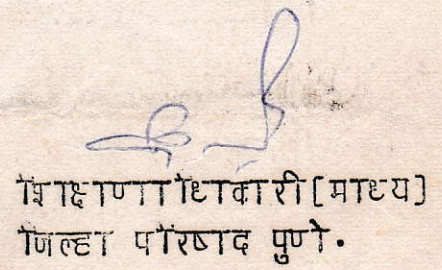 शिक्षाणाधिकारी(माध्य)
जिल्हा परिषद पुणे.